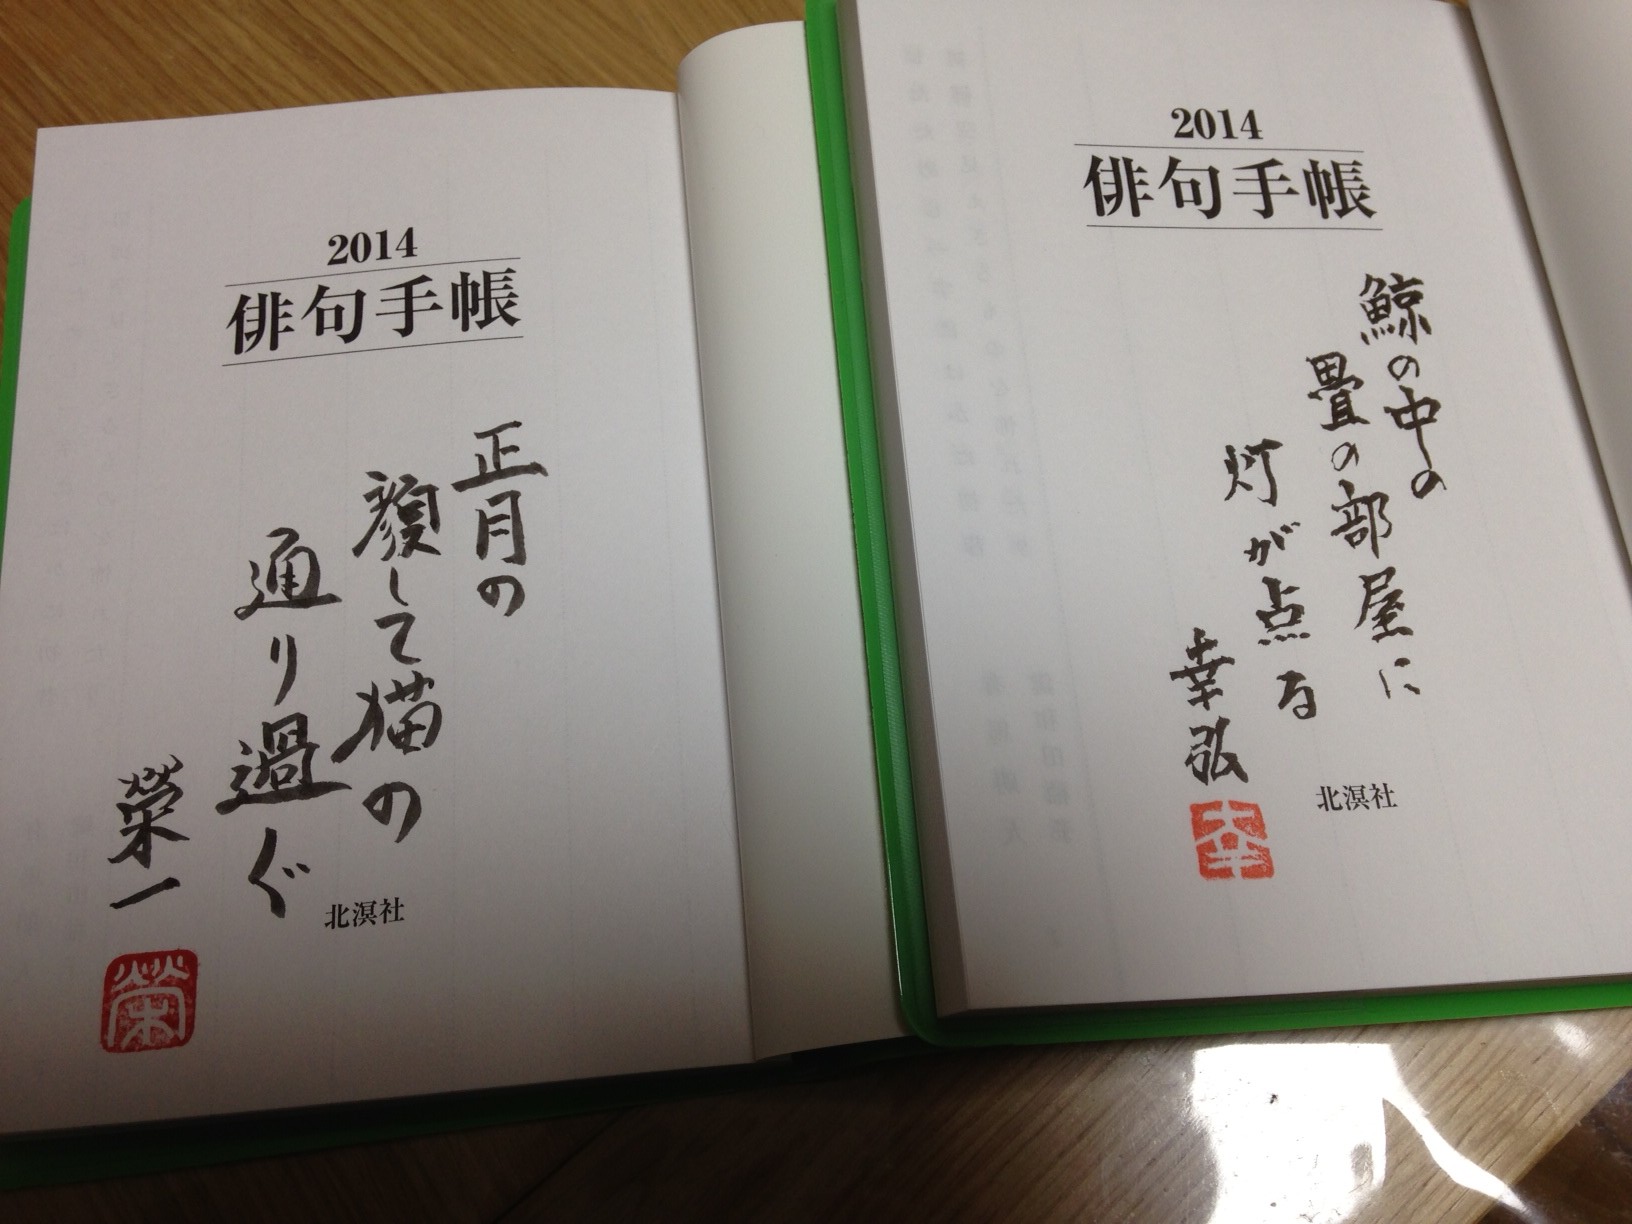 2014
俳句手帳
正月の
顔して猫の
通り過ぐ
榮一
榮
北溟社
2014
俳句手帳
鯨の中の
畳の部屋に
灯が点る
幸弘
北溟社